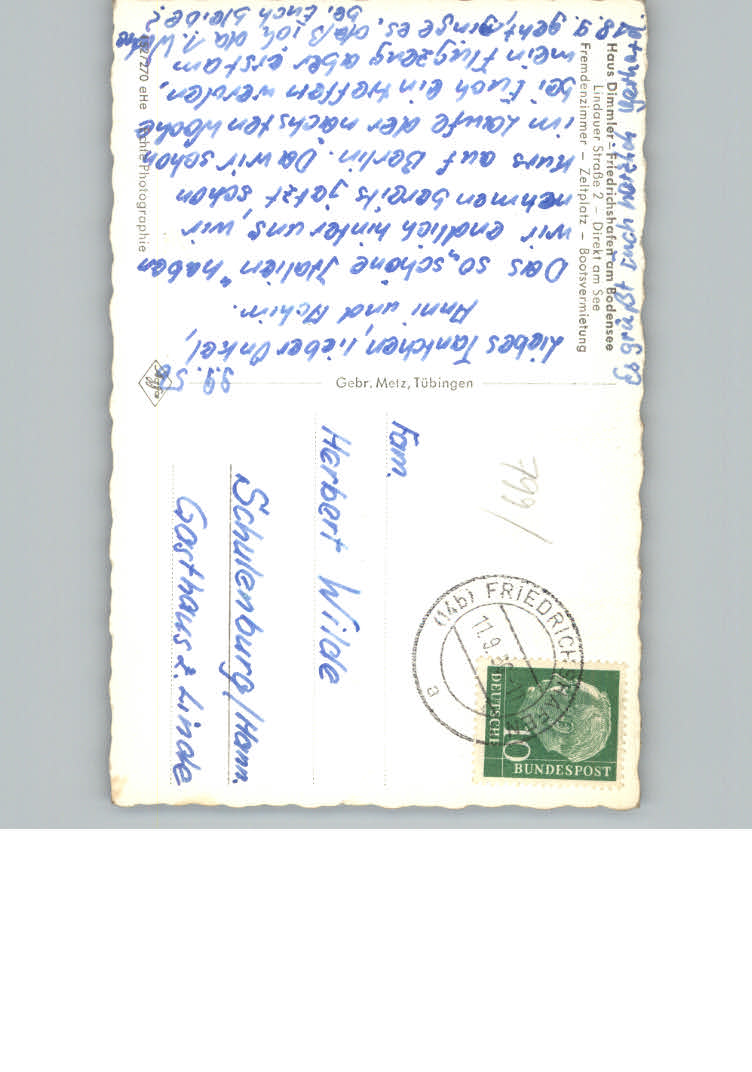 Haus Dimmler - Friedrichshafen am Bodensee
Lindauer Straße 2 - Direkt am See
Fremdenzimmer - Zeltplatz - Bootsvermietung
9.9.58
Liebes Tantchen, lieber Onkel,
Anni und Achim.
Das so „schöne Italien" haben
wir endlich hinter uns, wir
nehmen bereits jetzt schon
Kurs auf Berlin. Da wir schon
im Laufe der nächsten Woche
bei Euch eintreffen werden,
mein Flugzeug aber erst am
18.9. geht, ginge es, daß ich da 1. Woche
bei Euch bleibe?
Es grüßt Euch herzlich
Gebr. Metz, Tübingen
Echte Photographie
Fam.
Herbert Wilde
Schulenburg/Hann.
Gasthaus z. Linde
799/
(14b) FRIEDRICHSHAFEN
11.9.
a
DEUTSCHE
BUNDESPOST
10